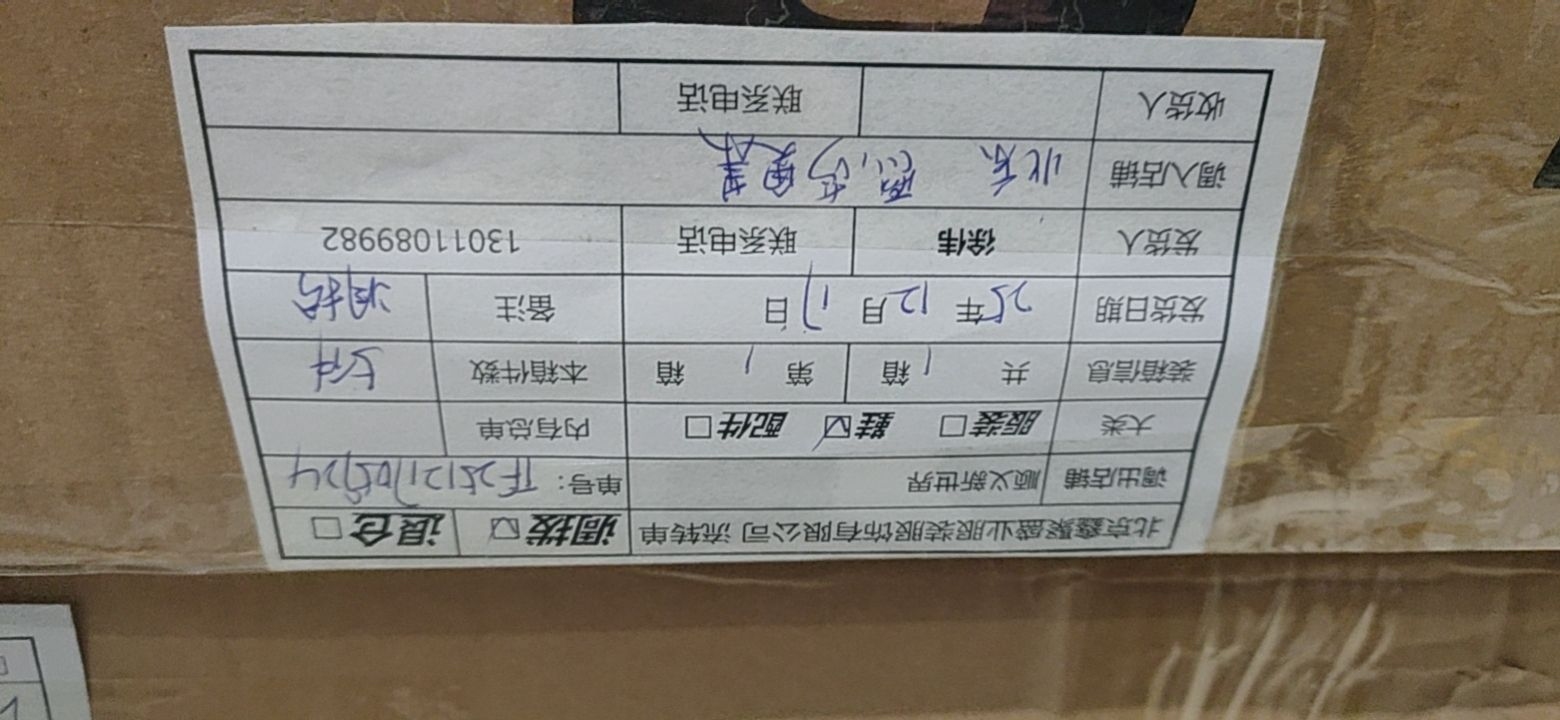 北京鑫聚盛业服装服饰有限公司 流转单 调拨☑ 退仓□
调出店铺 顺义新世界 单号：TF25121705724
大类 服装□ 鞋☑ 配件□ 内有总单
装箱信息 共 1 箱 第 1 箱 本箱件数
发货日期 25年 12月 17日 备注 调拨
发货人 徐伟 联系电话 13011089982
调入店铺 北京
收货人 联系电话